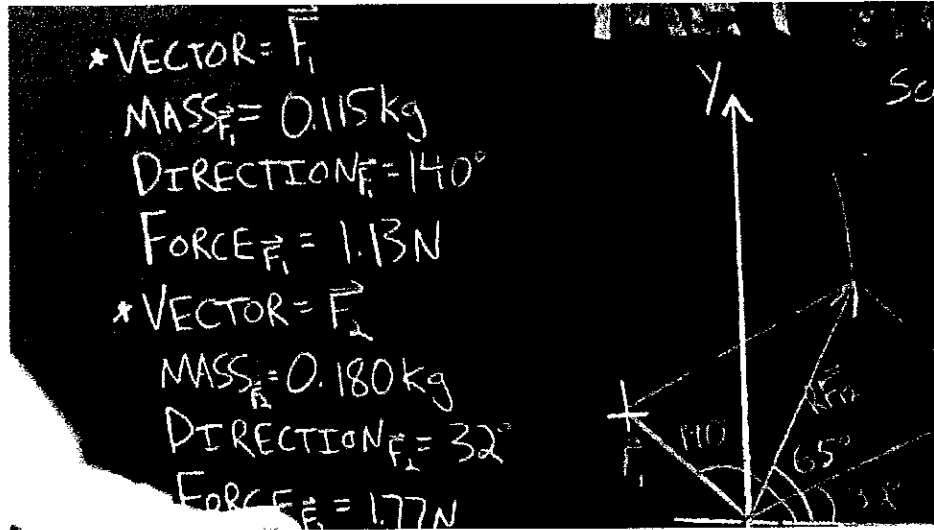 *VECTOR = F₁
MASS F₁ = 0.115kg
DIRECTION F₁ = 140°
FORCE F₁ = 1.13N
*VECTOR = F₂
MASS F₂ = 0.180kg
DIRECTION F₂ = 32°
FORCE F₁ = 1.77N
Y
Sc
F₁
140
65°